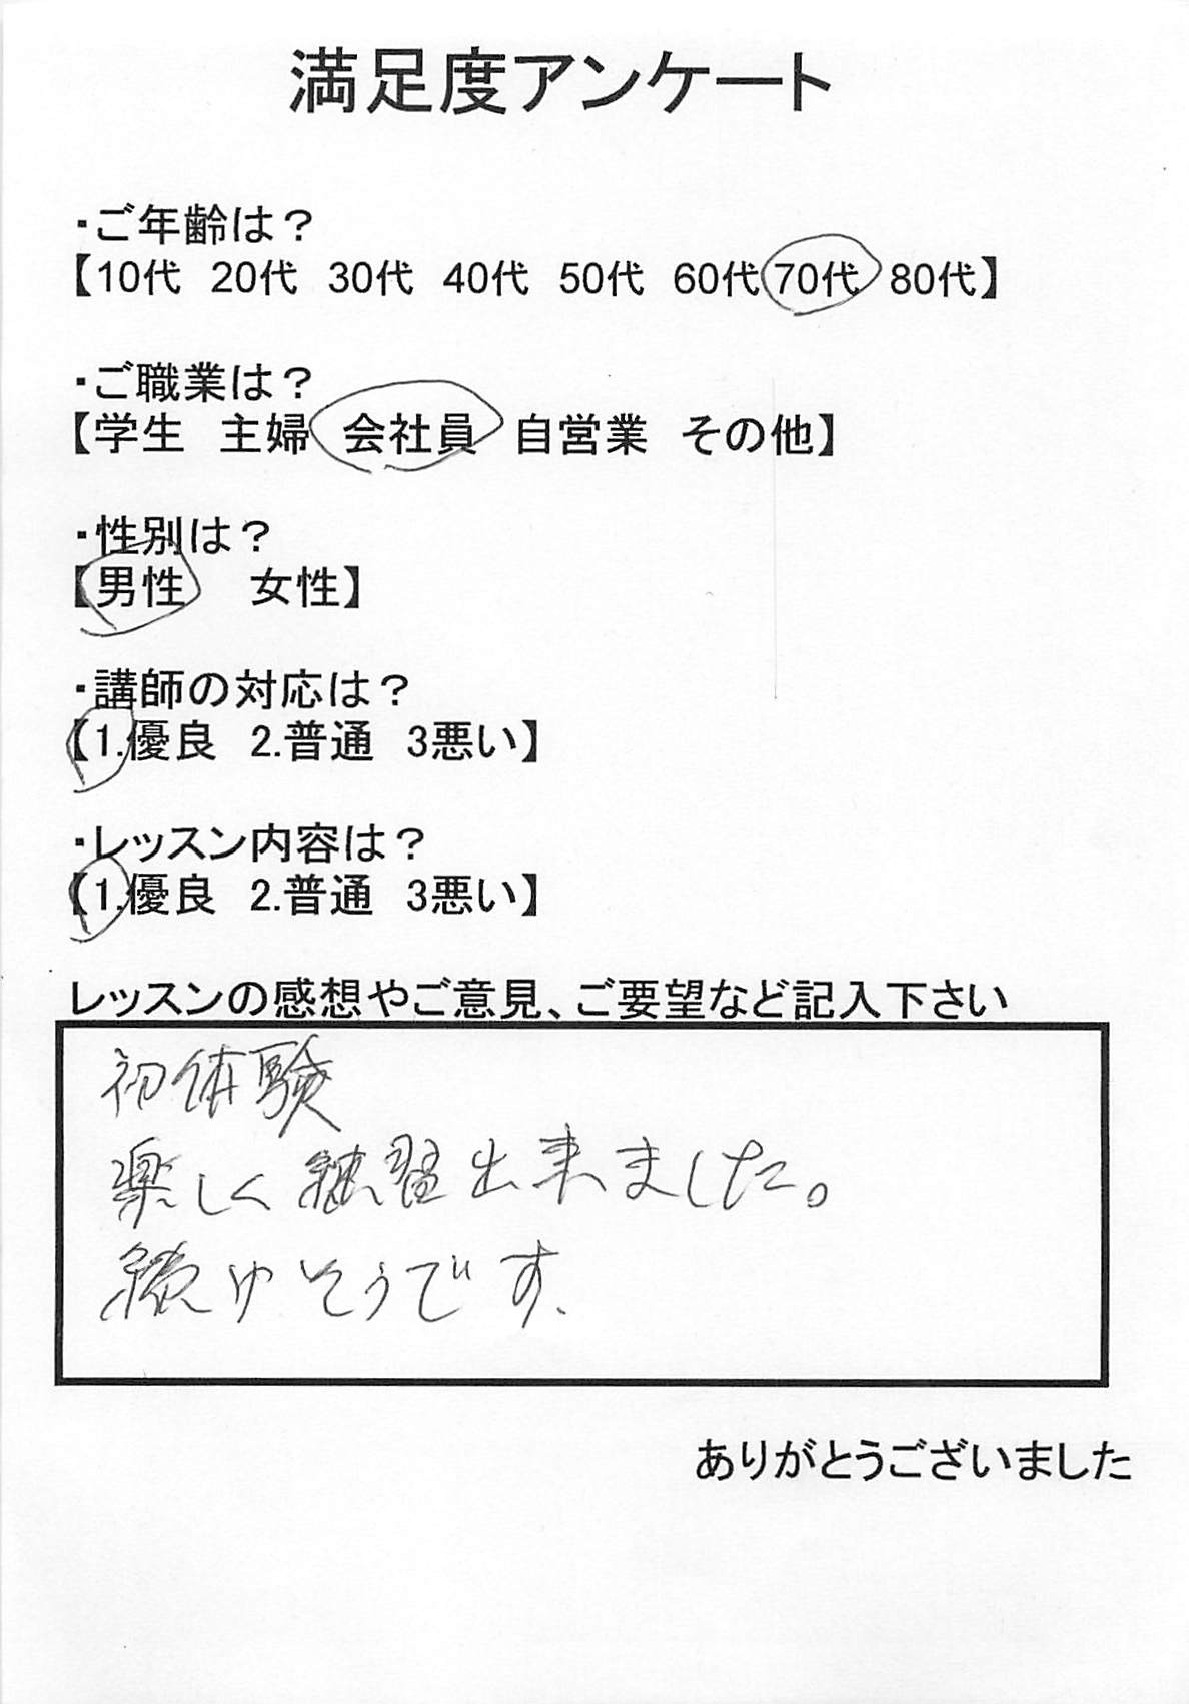 満足度アンケート
・ご年齢は？
【10代 20代 30代 40代 50代 60代 70代 80代】
・ご職業は？
【学生 主婦 会社員 自営業 その他】
・性別は？
【男性 女性】
・講師の対応は？
【1.優良 2.普通 3悪い】
・レッスン内容は？
【1.優良 2.普通 3悪い】
レッスンの感想やご意見、ご要望など記入下さい
初体験
楽しく練習出来ました。
続けそうです、
ありがとうございました